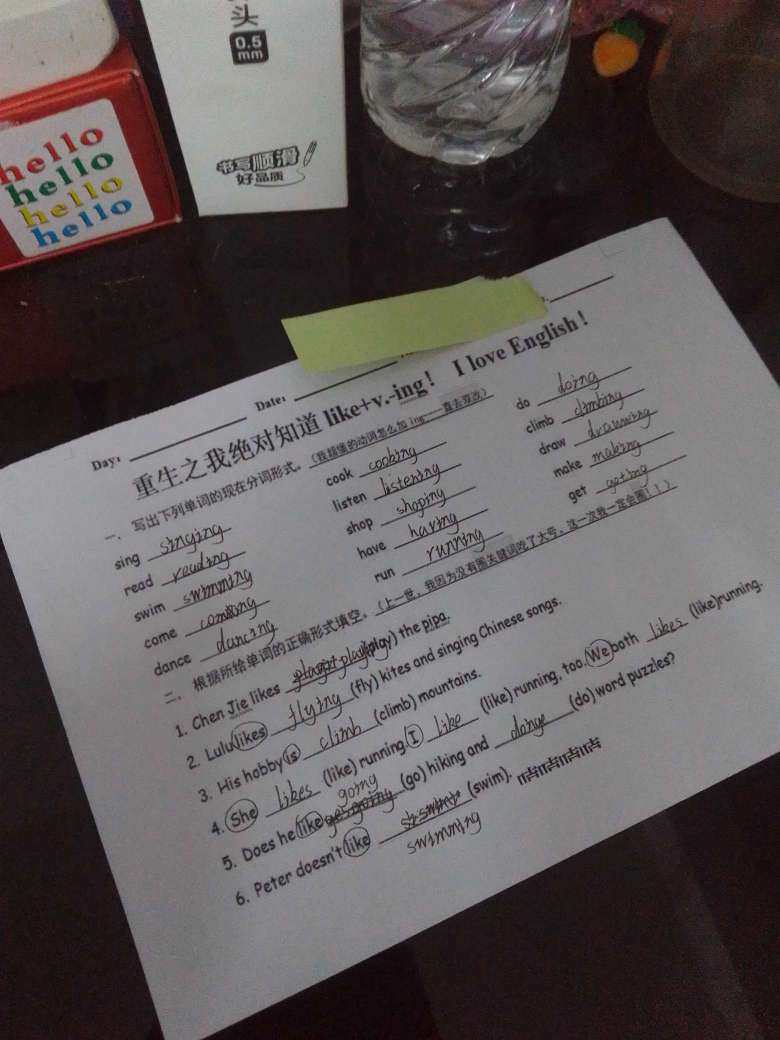 头
0.5
mm
书写顺滑
好品质
hello
hello
hello
hello
Day:
Date:
重生之我绝对知道 like+v.-ing！ I love English！
一、写出下列单词的现在分词形式。（我超懂的动词怎么加 ing:一直去双改）
sing singing cook cooking do doing
read reading listen listening climb climbing
swim swimming shop shoping draw drawing
come coming have having make making
dance dancing run running get geting
二、根据所给单词的正确形式填空。（上一世，我因为没有圈关键词吃了大亏，这一次我一定会圈！！）
1. Chen Jie likes playing (play) the pipa.
2. Lulu likes flying (fly) kites and singing Chinese songs.
3. His hobby is climb (climb) mountains.
4. She likes (like) running. I like (like) running, too. We both likes (like) running.
5. Does he like going (go) hiking and (do) word puzzles?
6. Peter doesn't like swimming (swim).